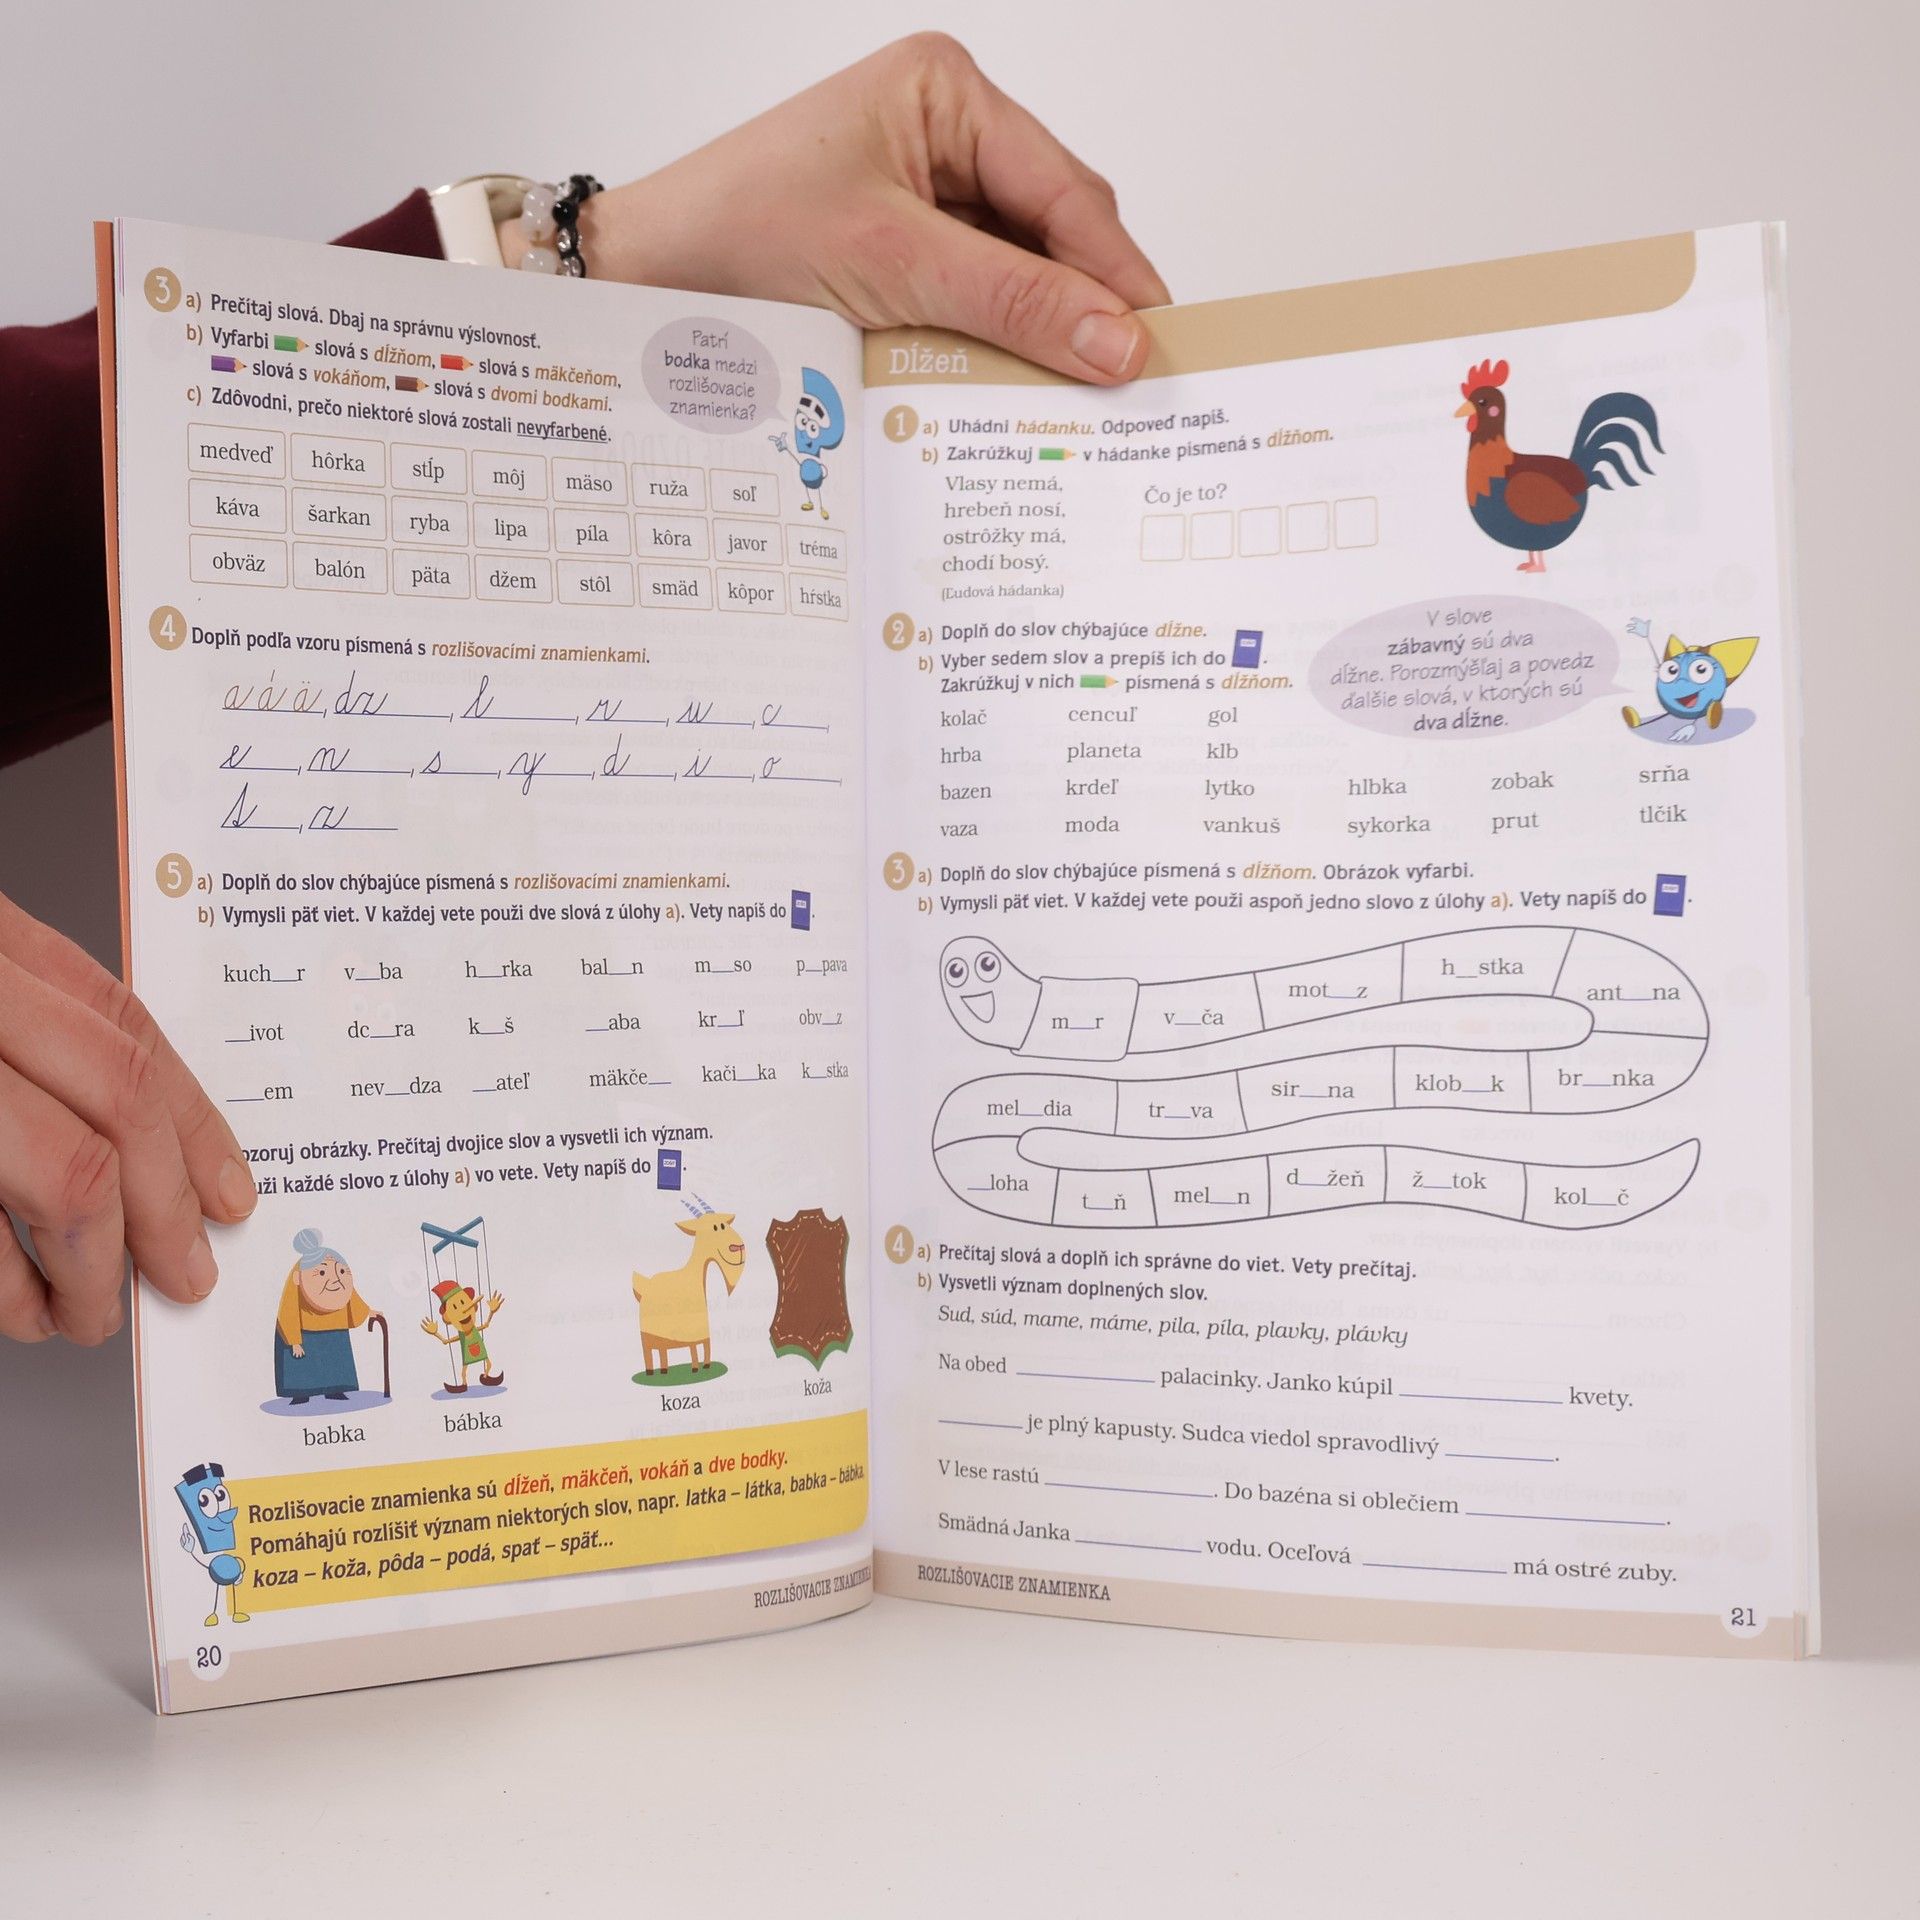 3 a) Prečítaj slová. Dbaj na správnu výslovnosť.
b) Vyfarbi slová s dĺžňom, slová s mäkčeňom,
slová s vokáňom, slová s dvomi bodkami.
c) Zdôvodni, prečo niektoré slová zostali nevyfarbené.
Patrí
bodka medzi
rozlišovacie
znamienka?
medveď hôrka stĺp môj mäso ruža soľ
káva šarkan ryba lipa píla kôra javor tréma
obväz balón päta džem stôl smäd kôpor hŕstka
4 Doplň podľa vzoru písmená s rozlišovacími znamienkami.
a á ä, dz , l , r , u , c ,
e , n , s , y , d , i , o ,
t , z
5 a) Doplň do slov chýbajúce písmená s rozlišovacími znamienkami.
b) Vymysli päť viet. V každej vete použi dve slová z úlohy a). Vety napíš do .
kuch__r v__ba h__rka bal__n m__so p__pava
__ivot dc__ra k__š __aba kr__ľ obv__z
__em nev__dza __ateľ mäkče__ kači__ka k__stka
ozoruj obrázky. Prečítaj dvojice slov a vysvetli ich význam.
uži každé slovo z úlohy a) vo vete. Vety napíš do .
babka bábka koza koža
Rozlišovacie znamienka sú dĺžeň, mäkčeň, vokáň a dve bodky.
Pomáhajú rozlíšiť význam niektorých slov, napr. latka – látka, babka – bábka,
koza – koža, pôda – podá, spať – späť...
ROZLIŠOVACIE ZNAMIENKA
20
Dĺžeň
1 a) Uhádni hádanku. Odpoveď napíš.
b) Zakrúžkuj v hádanke písmená s dĺžňom.
Vlasy nemá,
hrebeň nosí,
ostrôžky má,
chodí bosý.
(Ľudová hádanka)
Čo je to?
2 a) Doplň do slov chýbajúce dĺžne.
b) Vyber sedem slov a prepíš ich do .
Zakrúžkuj v nich písmená s dĺžňom.
V slove
zábavný sú dva
dĺžne. Porozmýšľaj a povedz
ďalšie slová, v ktorých sú
dva dĺžne.
kolač cencuľ gol
hrba planeta klb
bazen krdeľ lytko hlbka zobak srňa
vaza moda vankuš sykorka prut tlčik
3 a) Doplň do slov chýbajúce písmená s dĺžňom. Obrázok vyfarbi.
b) Vymysli päť viet. V každej vete použi aspoň jedno slovo z úlohy a). Vety napíš do .
m__r v__ča mot__z h__stka ant__na
mel__dia tr__va sir__na klob__k br__nka
__loha t__ň mel__n d__žeň ž__tok kol__č
4 a) Prečítaj slová a doplň ich správne do viet. Vety prečítaj.
b) Vysvetli význam doplnených slov.
Sud, súd, mame, máme, pila, píla, plavky, plávky
Na obed __________ palacinky. Janko kúpil __________ kvety.
__________ je plný kapusty. Sudca viedol spravodlivý __________.
V lese rastú __________. Do bazéna si oblečiem __________.
Smädná Janka __________ vodu. Oceľová __________ má ostré zuby.
ROZLIŠOVACIE ZNAMIENKA
21